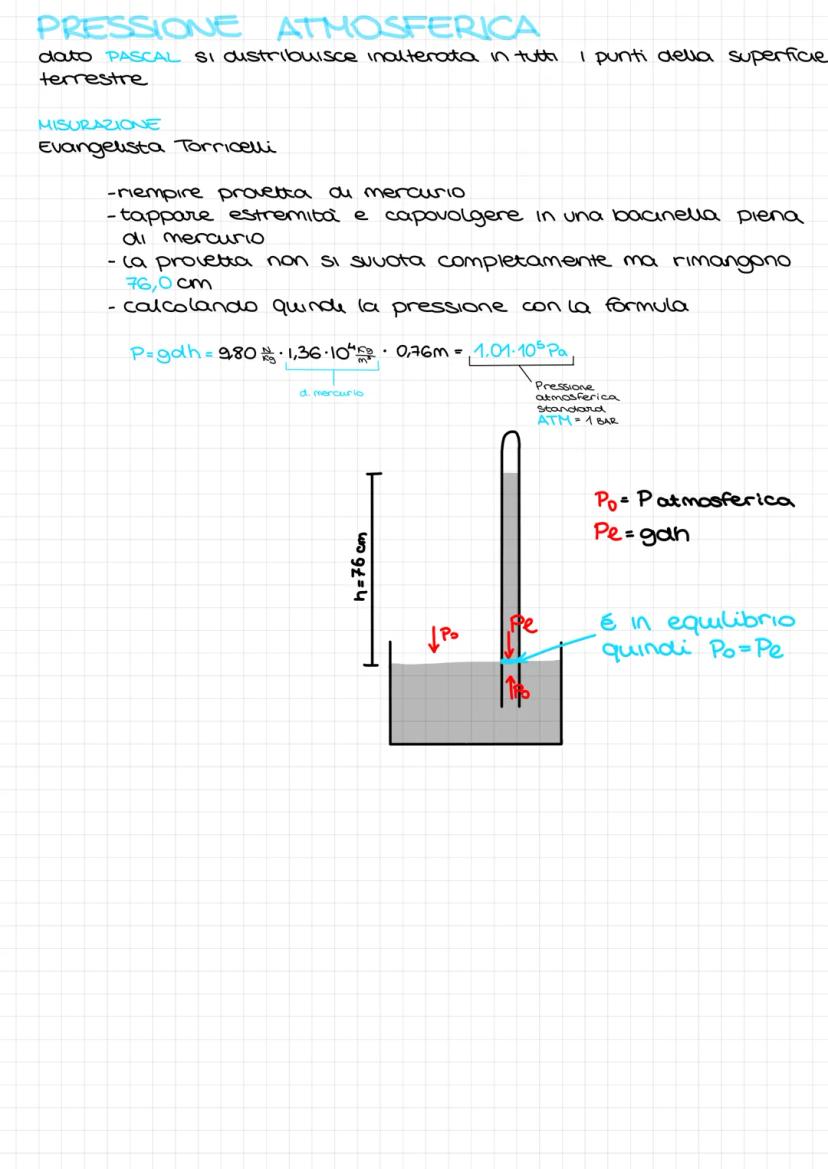 PRESSIONE ATMOSFERICA
dato PASCAL si distribuisce inalterata in tutti i punti della superficie
terrestre
MISURAZIONE
Evangelista Torricelli
-riempire provetta di mercurio
-tappare estremità e capovolgere in una bacinella piena
di mercurio
- la provetta non si svuota completamente ma rimangono
76,0 cm
- calcolando quindi la pressione con la formula
P=gdh = 9,80 N/Kg · 1,36·10⁴ Kg/m³ · 0,76m = 1.01·10⁵ Pa
d. mercurio
Pressione
atmosferica
standard
ATM = 1 BAR
h=76 cm
P₀ = P atmosferica
Pe = gdh
↓P₀
Pe
É in equilibrio
quindi P₀=Pe
↑P₀